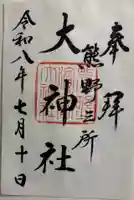 奉拝
熊野三所
大神社
令和八年七月十日